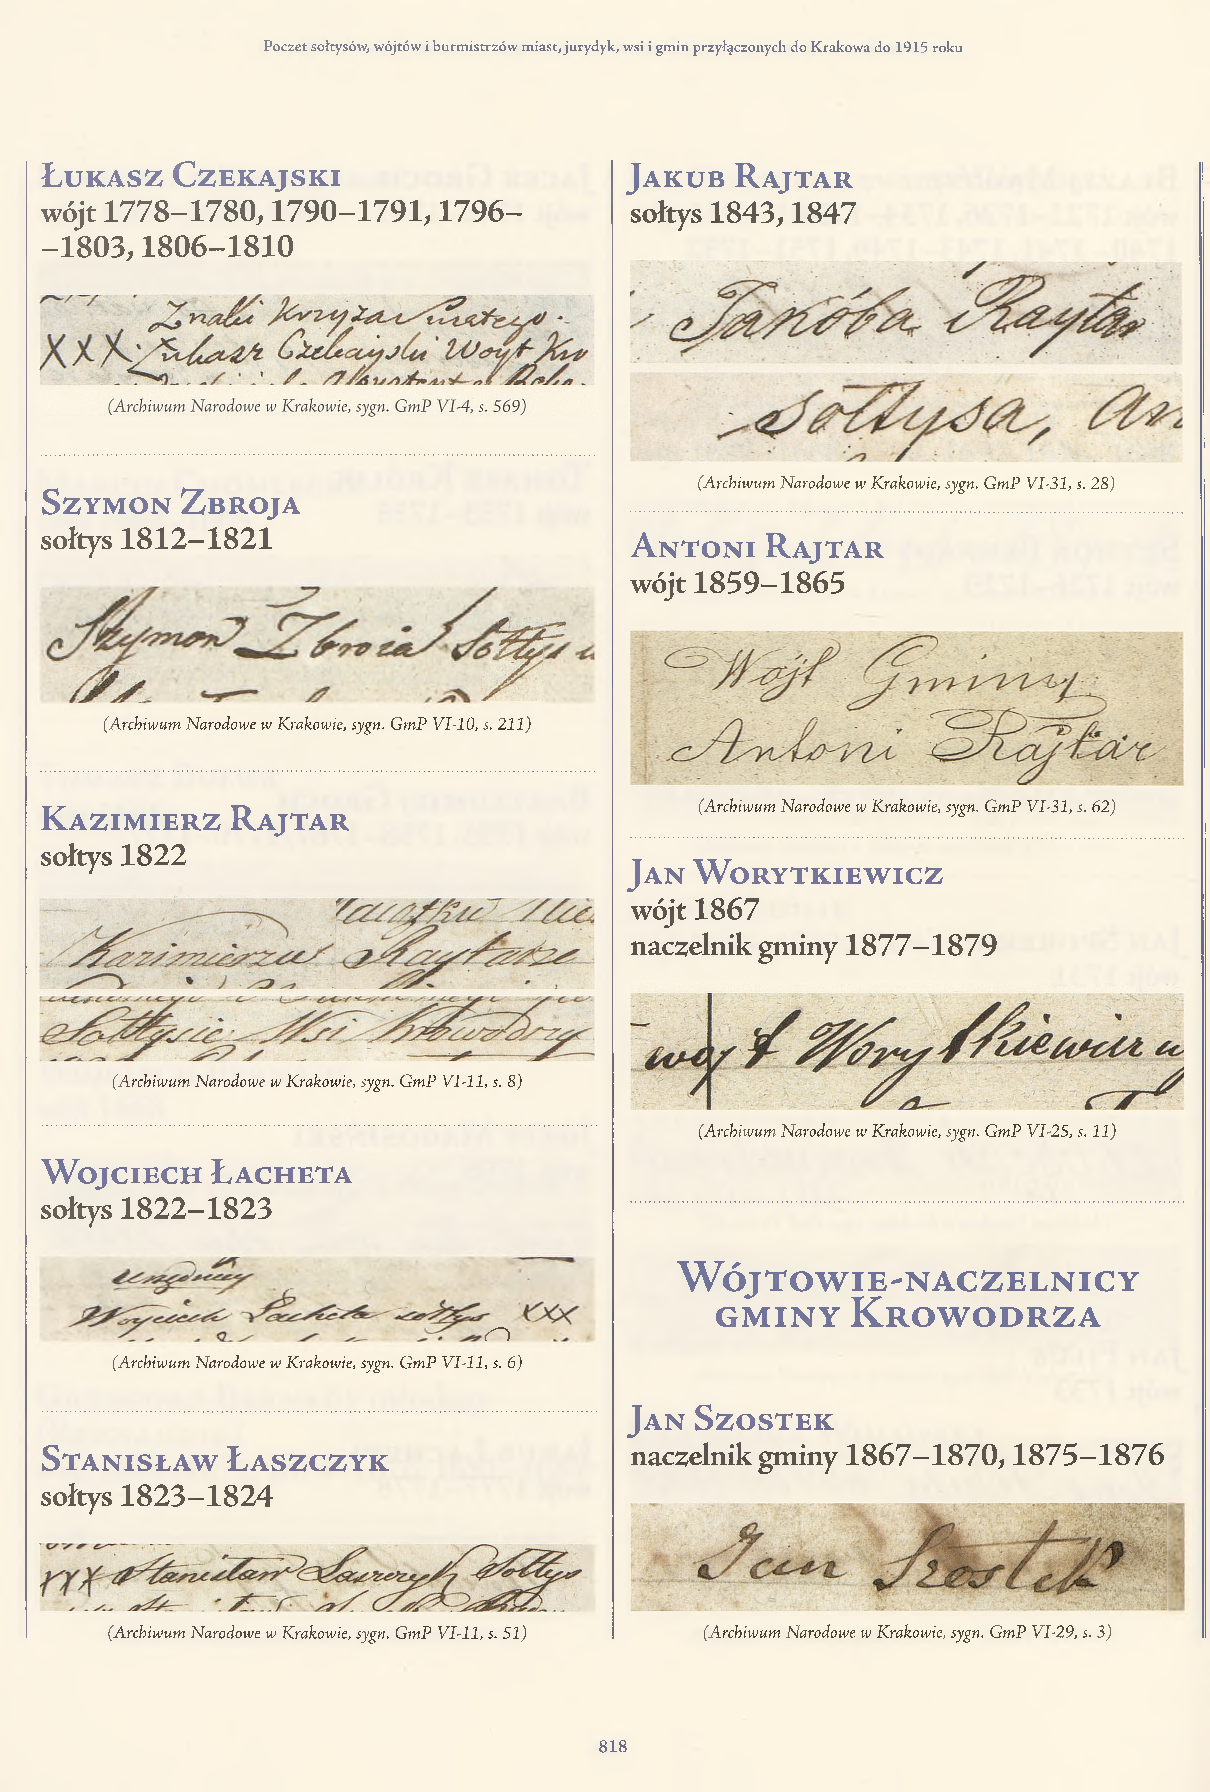 Poczet sołtysów, wójtów i burmistrzów miast, jurydyk, wsi i gmin przyłączonych do Krakowa do 1915 roku
Łukasz Czekajski
wójt 1778–1780, 1790–1791, 1796–
–1803, 1806–1810
Znaki Krzyża
XXX Łukasz Czekayski Woyt
(Archiwum Narodowe w Krakowie, sygn. GmP VI-4, s. 569)
Szymon Zbroja
sołtys 1812–1821
Szymon Zbroia Sołtys
(Archiwum Narodowe w Krakowie, sygn. GmP VI-10, s. 211)
Kazimierz Rajtar
sołtys 1822
Kazimierzu Raytarze
Sołtysie Wsi Krowodrzy
(Archiwum Narodowe w Krakowie, sygn. GmP VI-11, s. 8)
Wojciech Łacheta
sołtys 1822–1823
Woyciech Łacheta sołtys XXX
(Archiwum Narodowe w Krakowie, sygn. GmP VI-11, s. 6)
Stanisław Łaszczyk
sołtys 1823–1824
XXX Stanisław Łaszczyk Sołtys
(Archiwum Narodowe w Krakowie, sygn. GmP VI-11, s. 51)
Jakub Rajtar
sołtys 1843, 1847
Jakóba Raytar
sołtysa,
(Archiwum Narodowe w Krakowie, sygn. GmP VI-31, s. 28)
Antoni Rajtar
wójt 1859–1865
Wójt Gminy
Antoni Rajtar
(Archiwum Narodowe w Krakowie, sygn. GmP VI-31, s. 62)
Jan Worytkiewicz
wójt 1867
naczelnik gminy 1877–1879
wojt Worytkiewicz
(Archiwum Narodowe w Krakowie, sygn. GmP VI-25, s. 11)
Wójtowie-naczelnicy
gminy Krowodrza
Jan Szostek
naczelnik gminy 1867–1870, 1875–1876
Jan Szostek
(Archiwum Narodowe w Krakowie, sygn. GmP VI-29, s. 3)
818